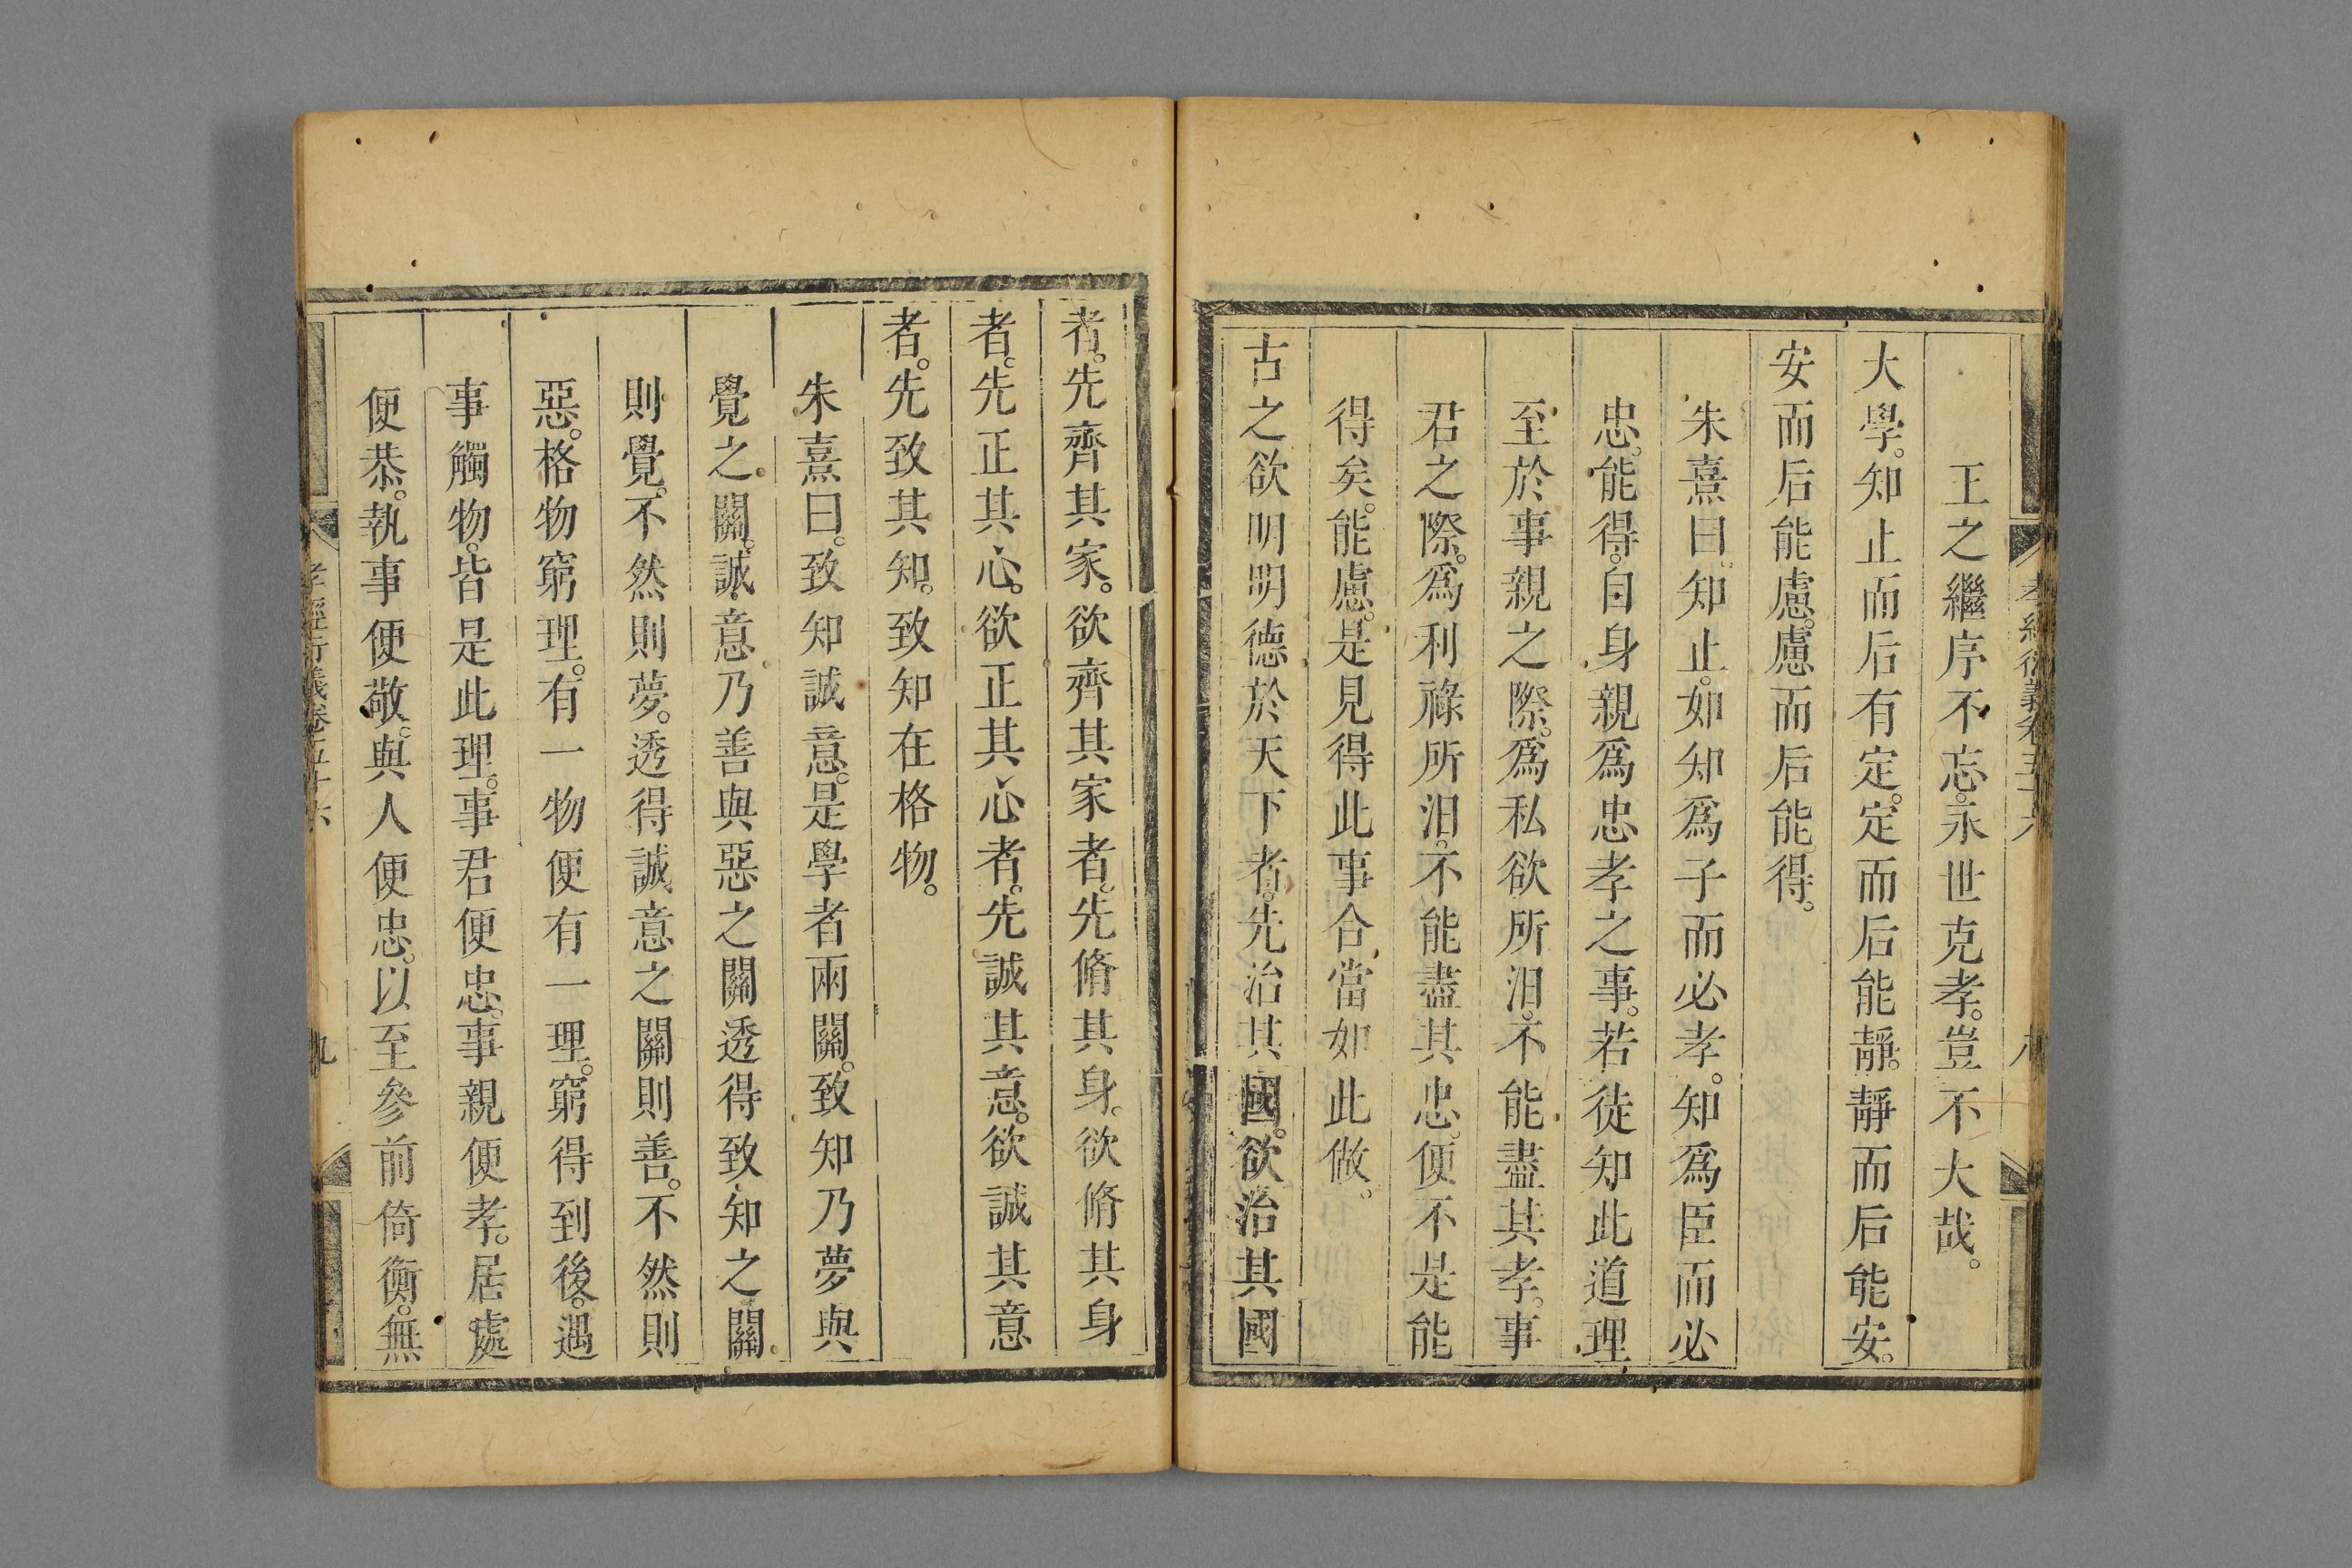 孝經衍義卷五十六
八
王之繼序不忘。永世克孝。豈不大哉。
大學。知止而后有定。定而后能靜。靜而后能安。
安而后能慮。慮而后能得。
朱熹曰。知止。如知爲子而必孝。知爲臣而必
忠。能得。自身親爲忠孝之事。若徒知此道理
至於事親之際。爲私欲所汨。不能盡其孝。事
君之際。爲利祿所汨。不能盡其忠。便不是能
得矣。能慮。是見得此事合當如此做。
古之欲明明德於天下者。先治其國。欲治其國
者。先齊其家。欲齊其家者。先脩其身。欲脩其身
者。先正其心。欲正其心者。先誠其意。欲誠其意
者。先致其知。致知在格物。
朱熹曰。致知誠意。是學者兩關。致知乃夢與
覺之關。誠意乃善與惡之關透得致知之關
則覺。不然則夢。透得誠意之關則善。不然則
惡。格物窮理。有一物便有一理。窮得到後。遇
事觸物。皆是此理。事君便忠。事親便孝。居處
便恭。執事便敬。與人便忠。以至參前倚衡。無
孝經衍義卷五十六
九